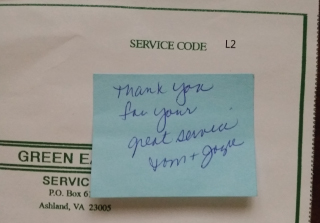 SERVICE CODE L2
Thank you
for your
great service
Tom + Joyie
GREEN EA
SERVIC
P.O. Box 6
Ashland, VA 23005